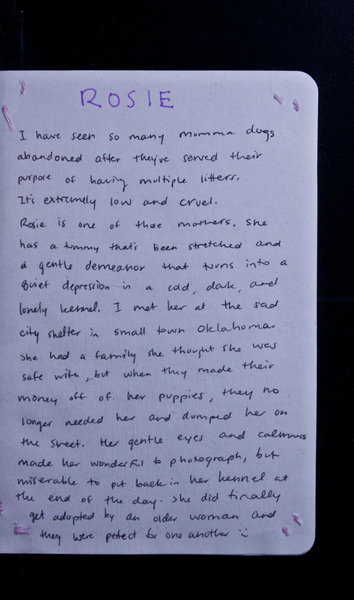 ROSIE
I have seen so many momma dogs
abandoned after they've served their
purpose of having multiple litters.
It's extremely low and cruel.
Rosie is one of those mothers. She
has a tummy that's been stretched and
a gentle demeanor that turns into a
quiet depression in a cold, dark, and
lonely kennel. I met her at the sad
city shelter in small town Oklahoma.
She had a family she thought she was
safe with, but when they made their
money off of her puppies, they no
longer needed her and dumped her on
the street. Her gentle eyes and calmness
made her wonderful to photograph, but
miserable to put back in her kennel at
the end of the day. She did finally
get adopted by an older woman and
they were perfect for one another :)